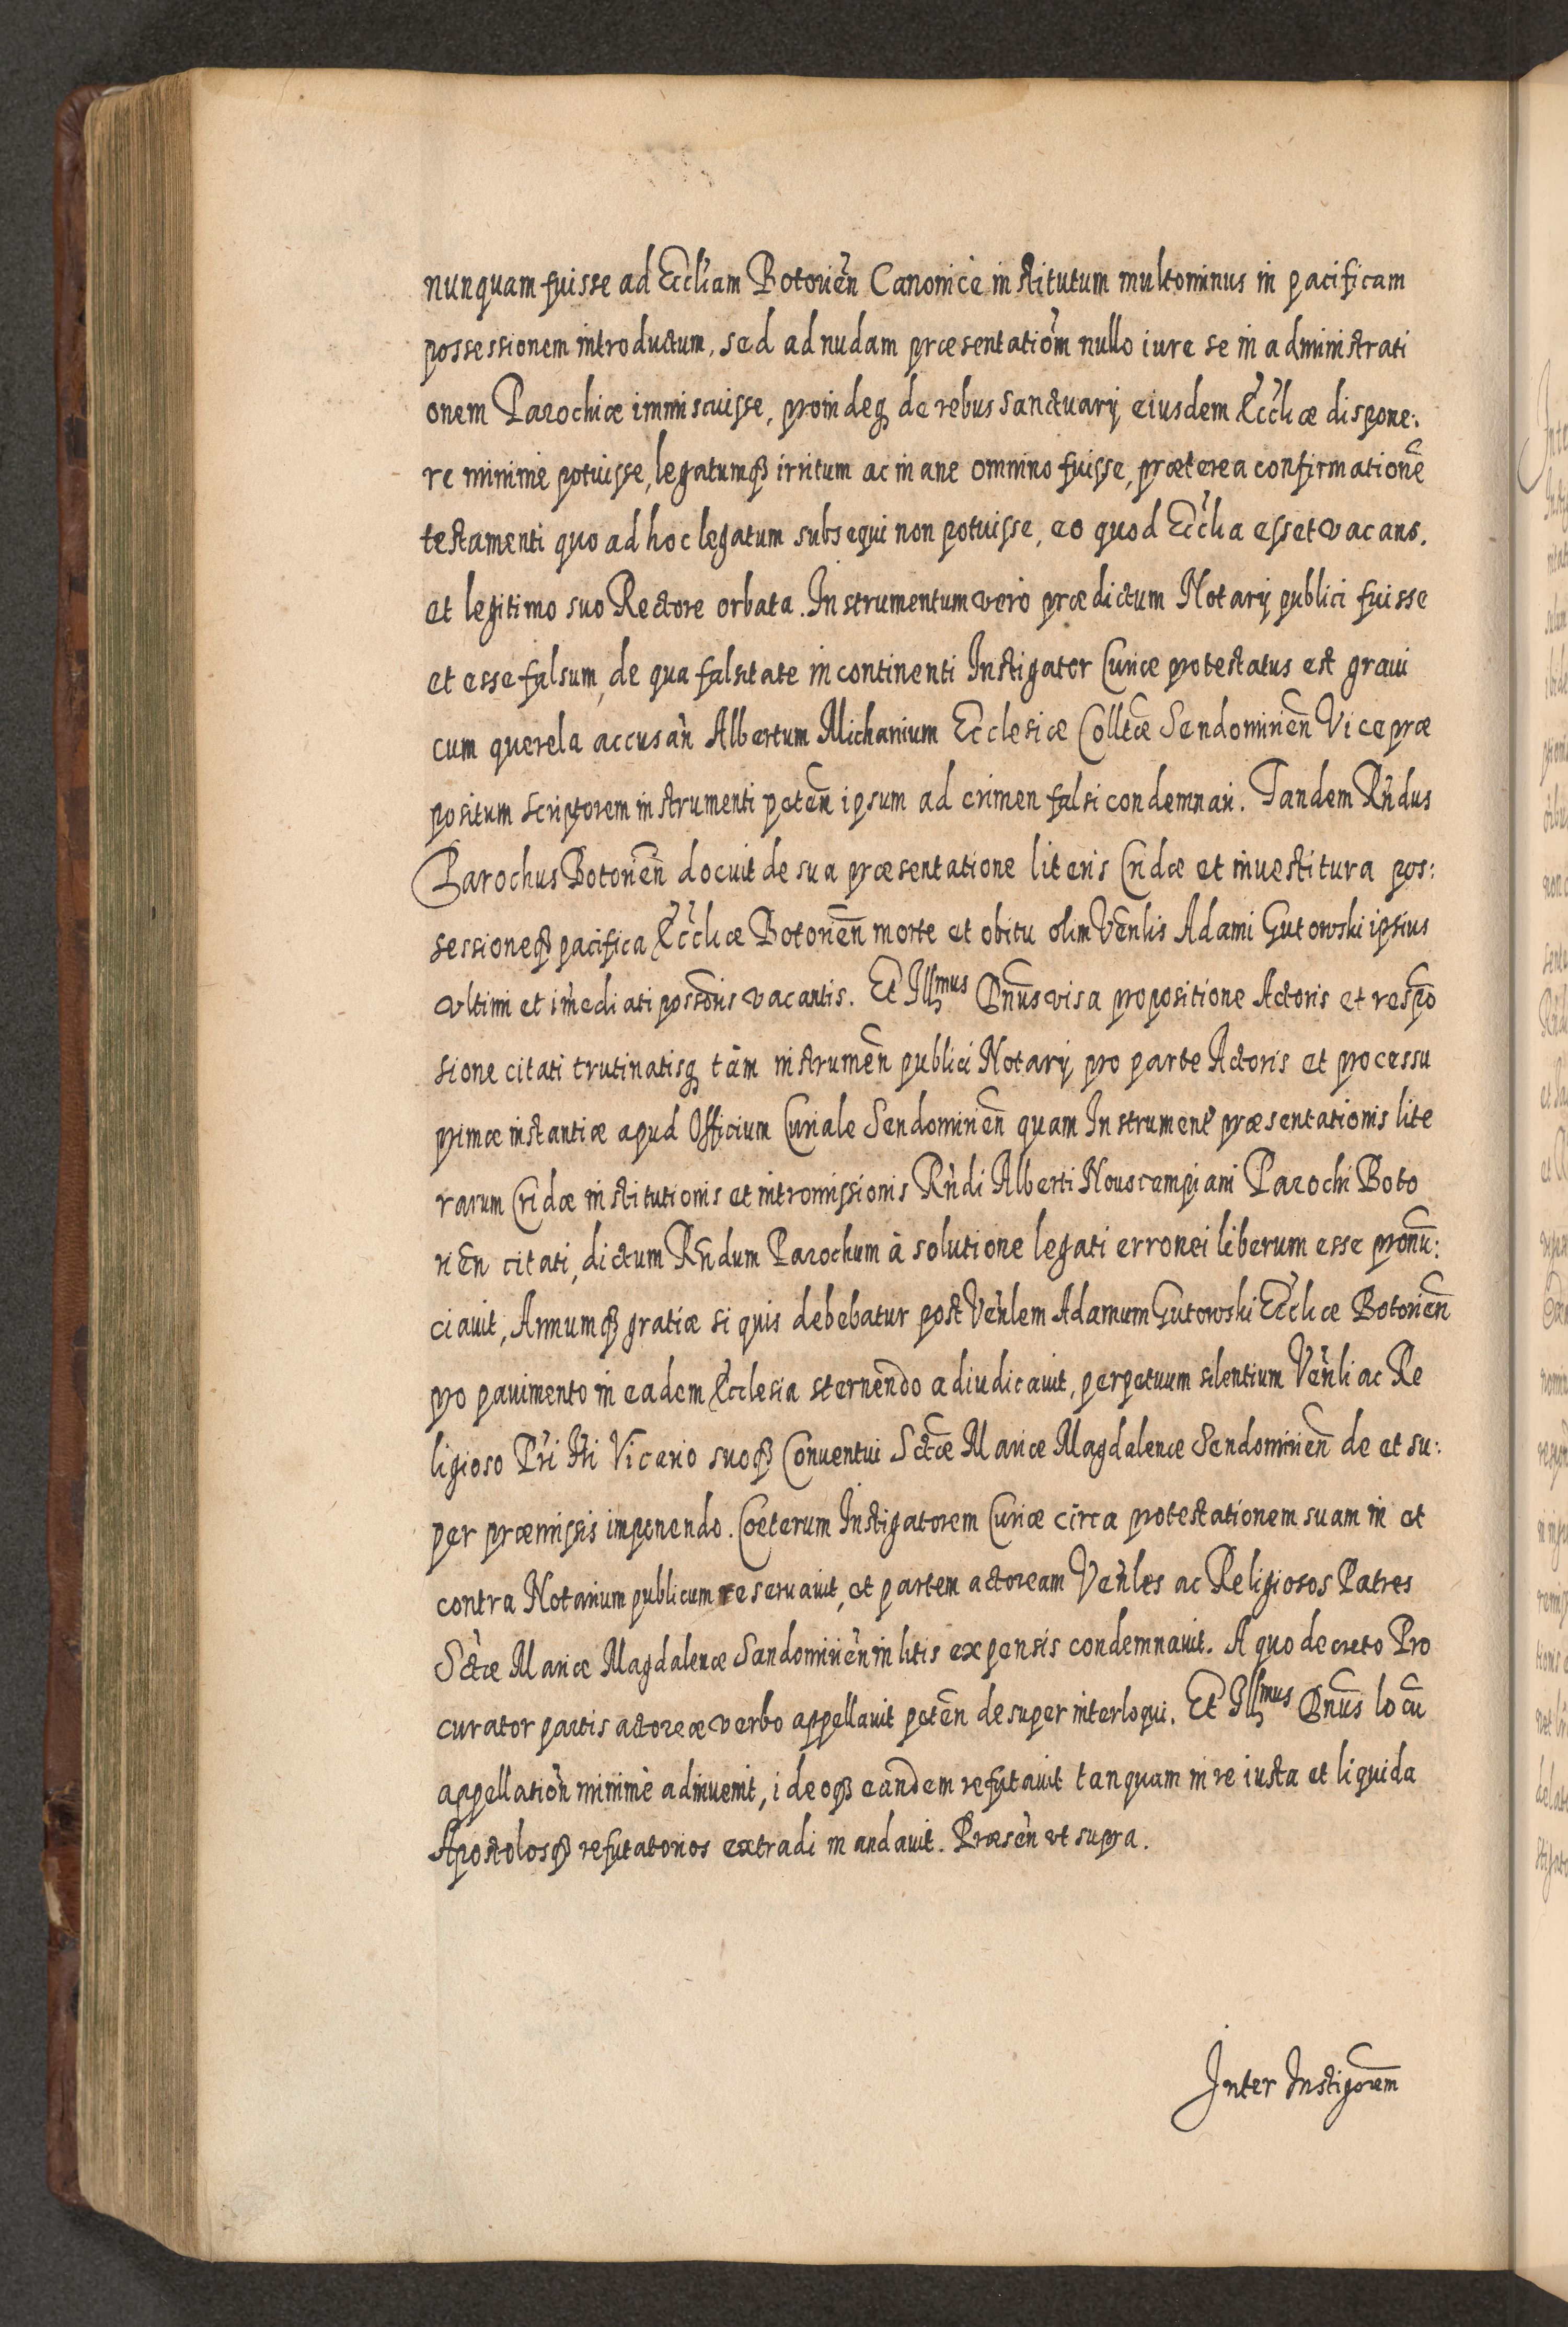 nunquam fuisse ad Eccl̃iam Botorien̄ Canonicè institutum multominus in pacificam
possessionem introductum, sed ad nudam præsentatiom̃ nullo iure se in administrati
onem Parochiæ immiscuisse, proindeq; de rebus sanctuarij eiusdem Eccl̃iæ dispone:
re minimè potuisse, legatumq; irritum ac inane omnino fuisse, præterea confirmationē
testamenti quo ad hoc legatum subsequi non potuisse, eo quod Eccl̃ia esset vacans,
et legitimo suo Rectore orbata. Instrumentum verò prædictum Notarij publici fuisse
et esse falsum, de qua falsitate incontinenti Instigator Curiæ protestatus est graui
cum querela accusan̄ Albertum Michanium Ecclesiæ Colltæ̃ Sendomirien̄ Vicepræ
positum scriptorem instrumenti peten̄ ipsum ad crimen falsi condemnari. Tandem Rñdus
Parochus Botorien̄ docuit de sua præsentatione literis Cridæ et inuestitura pos:
sessioneq; pacifica Eccl̃iæ Botorien̄ morte et obitu olim Ven̄lis Adami Gutowski ipsius
vltimi et im̃ediati possoris̃ vacantis. Et Illmus Dnus̃ visa propositione Actoris et respō
sione citati trutinatisq; tam instrumen̄ publici Notarij pro parte Actoris et processu
primæ instantiæ apud Officium Curiale Sendomirien̄ quam Instrument̃ præsentationis lite
rarum Cridæ institutionis et intromissionis Rñdi Alberti Nouocampiani Parochi Boto
rien̄ citati, dictum Rñdum Parochum à solutione legati erronei liberum esse pronū:
ciauit, Annumq; gratiæ si quis debebatur post Ven̄lem Adamum Gutowski Eccl̃iæ Botorien̄
pro pauimento in eadem Ecclesia sternendo adiudicauit, perpetuum silentium Ven̄li ac Re
ligioso Pri Fri Vicario suoq; Conuentui Sctæ̃ Mariæ Magdalenæ Sendomirien̄ de et su:
per præmissis imponendo. Cœterum Instigatorem Curiæ circa protestationem suam in et
contra Notarium publicum reseruauit, et partem actoream Ven̄les ac Religiosos Patres
Sctæ̃ Mariæ Magdalenæ Sandomirien̄ in litis expensis condemnauit. A quo decreto Pro
curator partis actoreæ verbo appellauit peten̄ desuper interloqui. Et Illmus Dnus̃ locū
appellation̄ minimè adinuenit, ideoq; eandem refutauit tanquam in re iusta et liquida
Apostolosq; refutatorios extradi mandauit. Præsen̄ vt supra.
Inter Instigorem̃